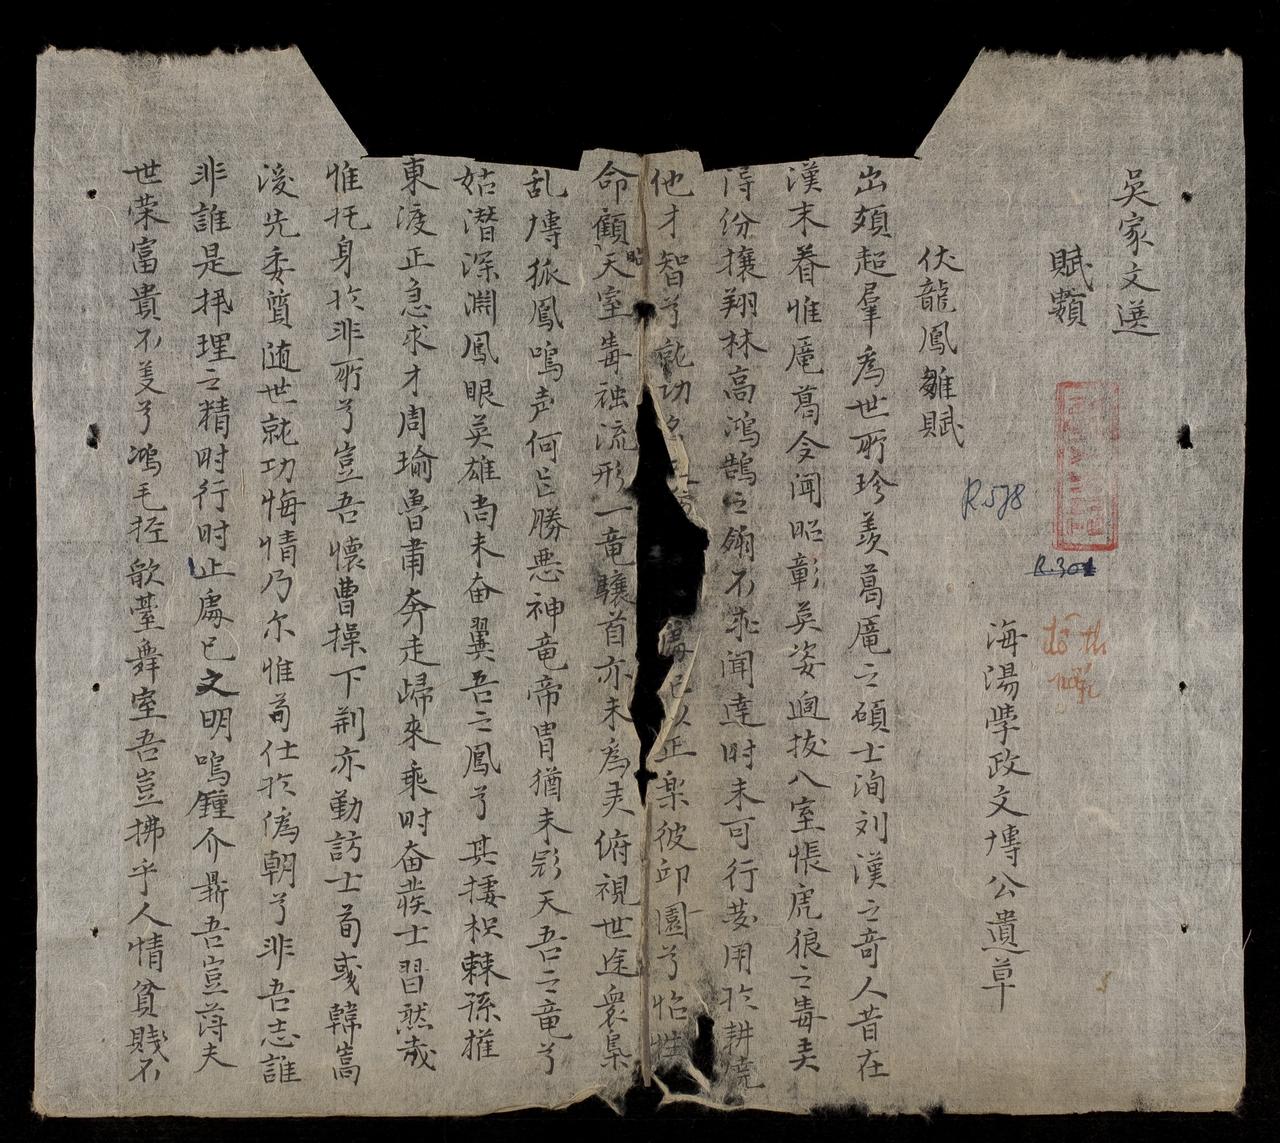 吳家文選
賦類
海湯学政文博公遺草
伏龍鳳雛賦
出類超羣為世所珍羨葛龐之碩士洵刘漢之奇人昔在
漢末眷惟龐葛令闻昭彰英姿逈拔八室悵虎狼之毒
份攘翔林高鴻鵠之不乖闻達时未可行麦用於耕
他才智兮就功為已以正楽彼邱園兮怡性
命顧昭天室毒流形一竜驤首亦未為夫俯視世途衆梟
乱博孤鳳鳴声何足勝悪神竜帝胄猶未天吾之竜兮
姑潛深渊鳳眼英雄尚未奋翼吾之鳳兮其捿枳棘孫権
東渡正急求才周瑜魯肅奔走歸來乘时奋士習然哉
惟托身於非所兮豈吾懷曹操下荆亦勤訪士荀彧韓嵩
後先委質随世就功悔情乃尔惟苟仕於偽朝兮非吾志誰
非誰是理之精时行时止處已文明鳴鐘介鼎吾豈夫
世荣富貴不兮鴻毛歌臺舞室吾豈拂乎人情貧賤不
R.578
R.301